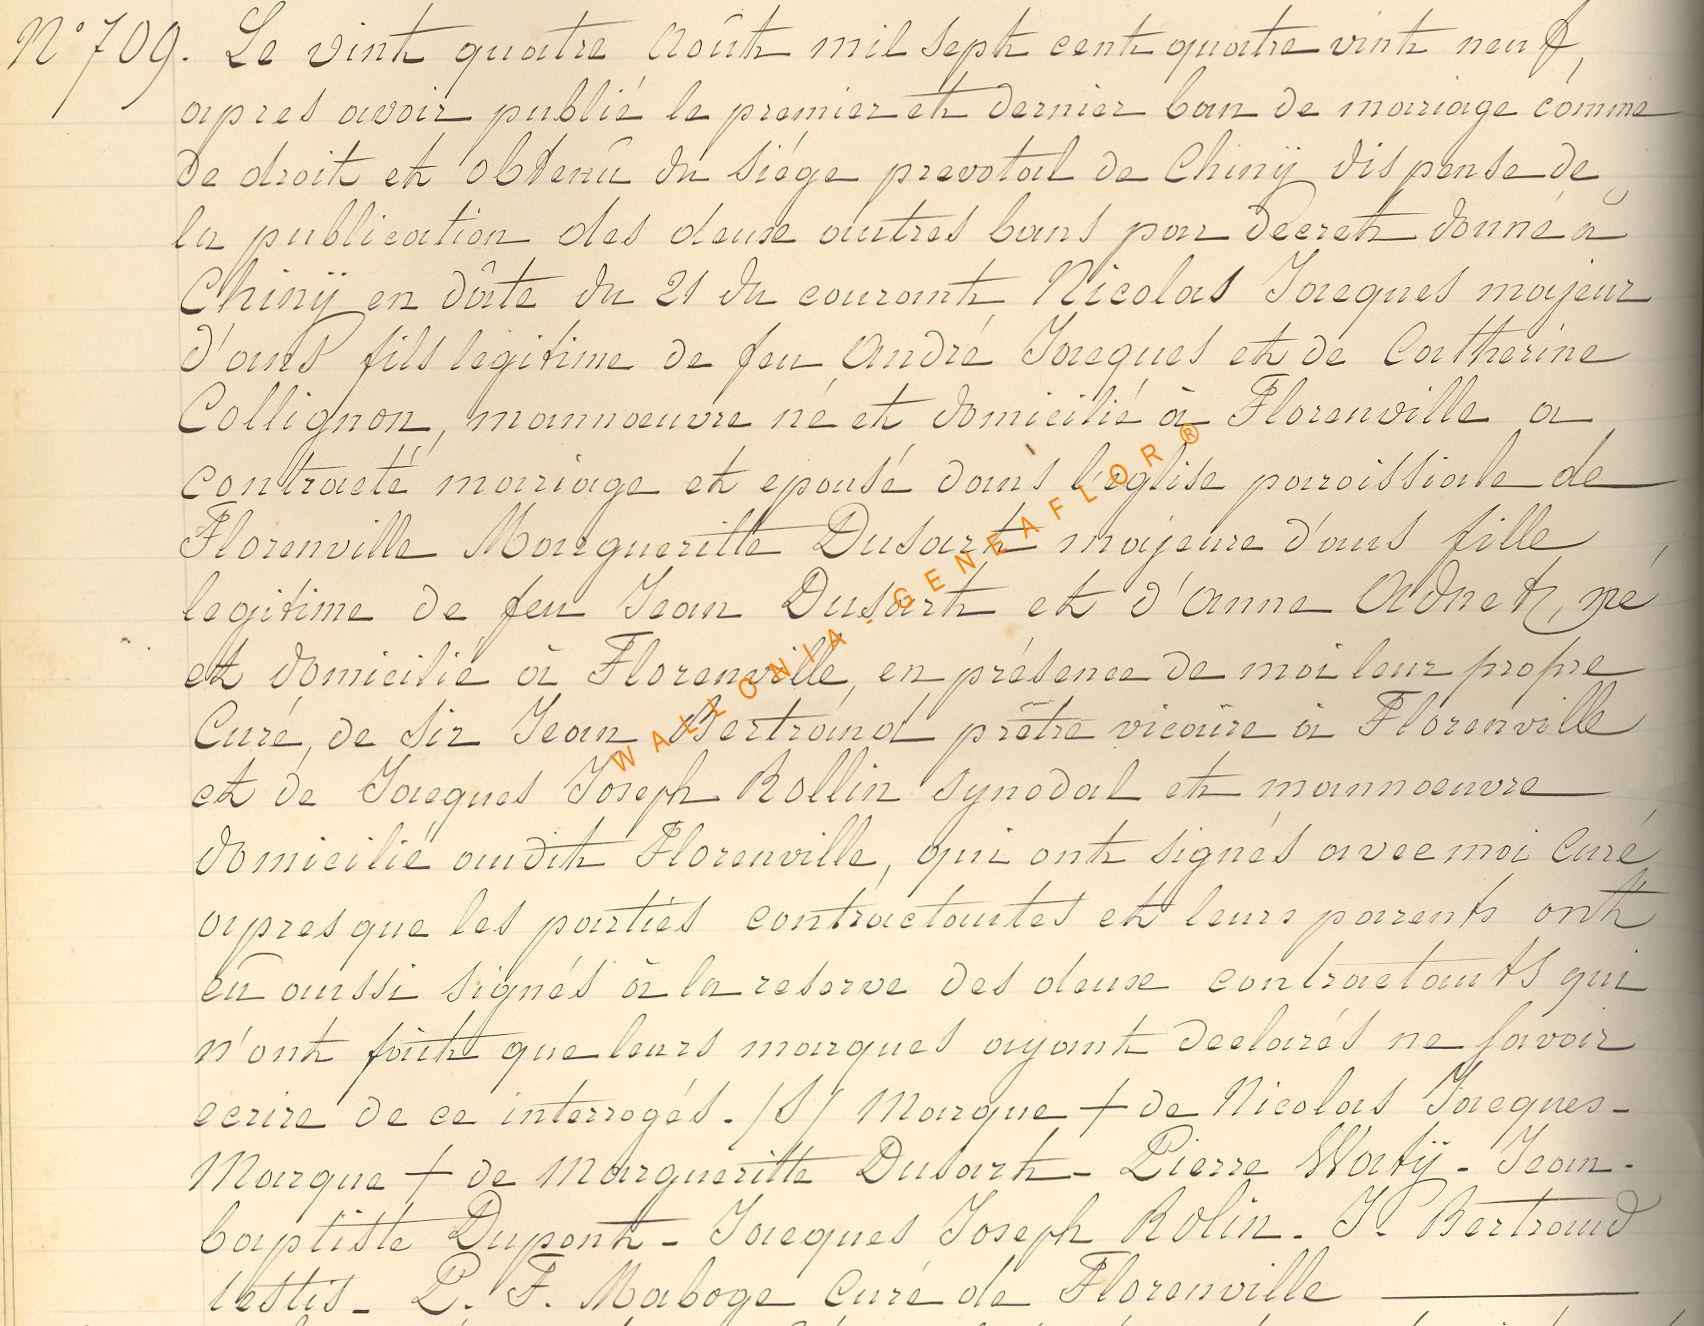 N° 709. Le vint quatre Août mil sept cent quatre vint neuf,
apres avoir publié le premier et dernier ban de mariage comme
de droit et obtenû du siége prevotal de Chinÿ dispense de
la publication des deux autres bans par decret donné à
Chinÿ en dâte du 21 du courant, Nicolas Jacques majeur
d'ans fils legitime de feu André Jacques et de Catherine
Collignon, mannoeuvre né et domicilié à Florenville a
contracté mariage et epousé dans l'eglise parroissiale de
Florenville Margueritte Dusart majeure d'ans fille
legitime de feu Jean Dusart et d'Anne Adnet, né
et domicilié à Florenville, en présence de moi leur propre
Curé, de Sir Jean Bertrand prêtre vicaire à Florenville
et de Jacques Joseph Rollin synodal et mannoeuvre
domicilié audit Florenville, qui ont signés avec moi Curé
apres que les parties contractantes et leurs parents ont
eû aussi signés à la reserve des deux contractants qui
n'ont fait que leurs marques ayant declarés ne savoir
ecrire de ce interrogés. /S/ Marque + de Nicolas Jacques -
Marque + de Margueritte Dusart - Pierre Watÿ - Jean -
baptiste Dupont - Jacques Joseph Rolin - J. Bertrand
testis - P. F. Maboge Curé de Florenville
WALLONIA - GENEAFLOR ®